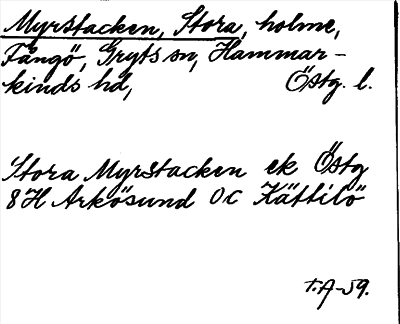 Myrstacken, Stora, holme,
Fångö, Gryts sn, Hammar-
kinds hd, Östg. l.
Stora Myrstacken ek Östg
8H Arkösund 0C Kättilö
T.A-59.